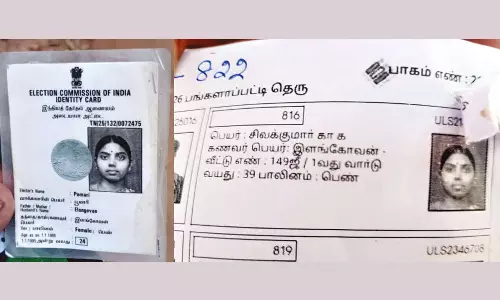 ELECTION COMMISSION OF INDIA
IDENTITY CARD
இந்திய தேர்தல் ஆணையம்
அடையாள அட்டை
TN/25/132/0072475
Elector's Name : Punari
வாக்காளரின் பெயர் :
Father / Mother /
Husband's Name : Elangovan
இளங்கோவன்
பெயர்
Sex / Female / பெண்
24
- 822
பாகம் எண் :
26 பங்களாப்பட்டி தெரு
816
பெயர் : சிவக்குமார் கா க
கணவர் பெயர்: இளங்கோவன் -
வீட்டு எண் : 149ஜீ / 1வது வார்டு
வயது : 39 பாலினம் : பெண்
819
ULS2346708